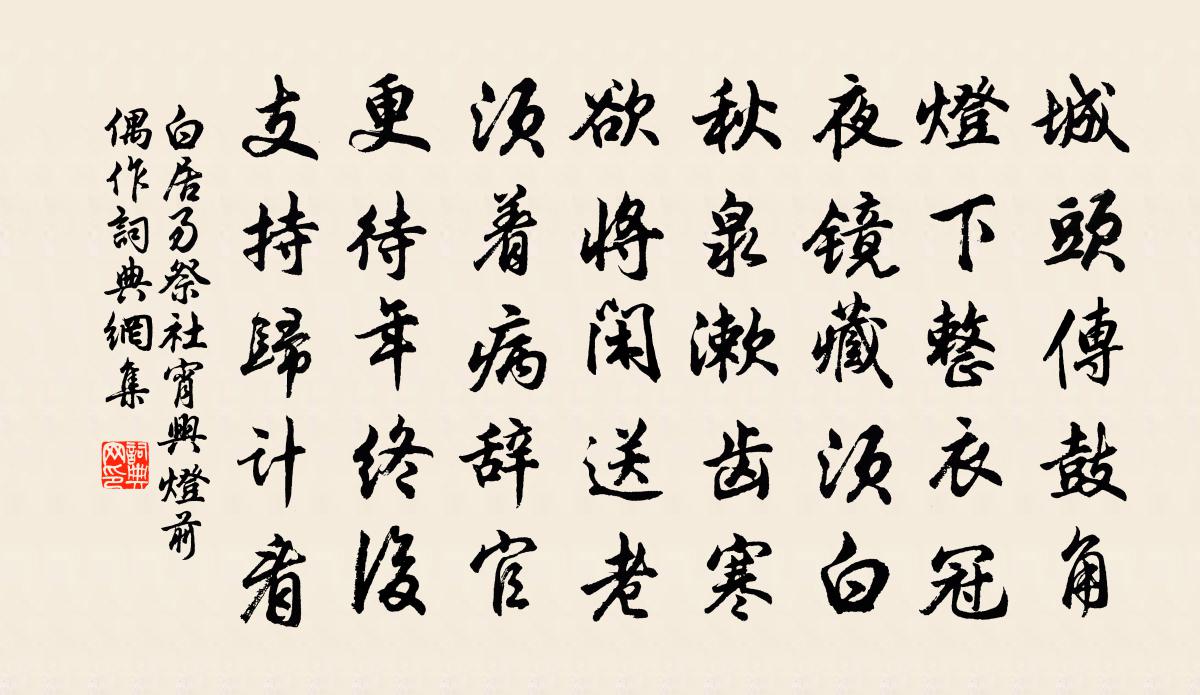 城頭傳鼓角
燈下整衣冠
夜镜藏须白
秋泉漱齿寒
欲将闲送老
须着病辞官
更待年终後
支持歸计看
白居易祭社宵興燈前
偶作詞典網集
詞典
网印